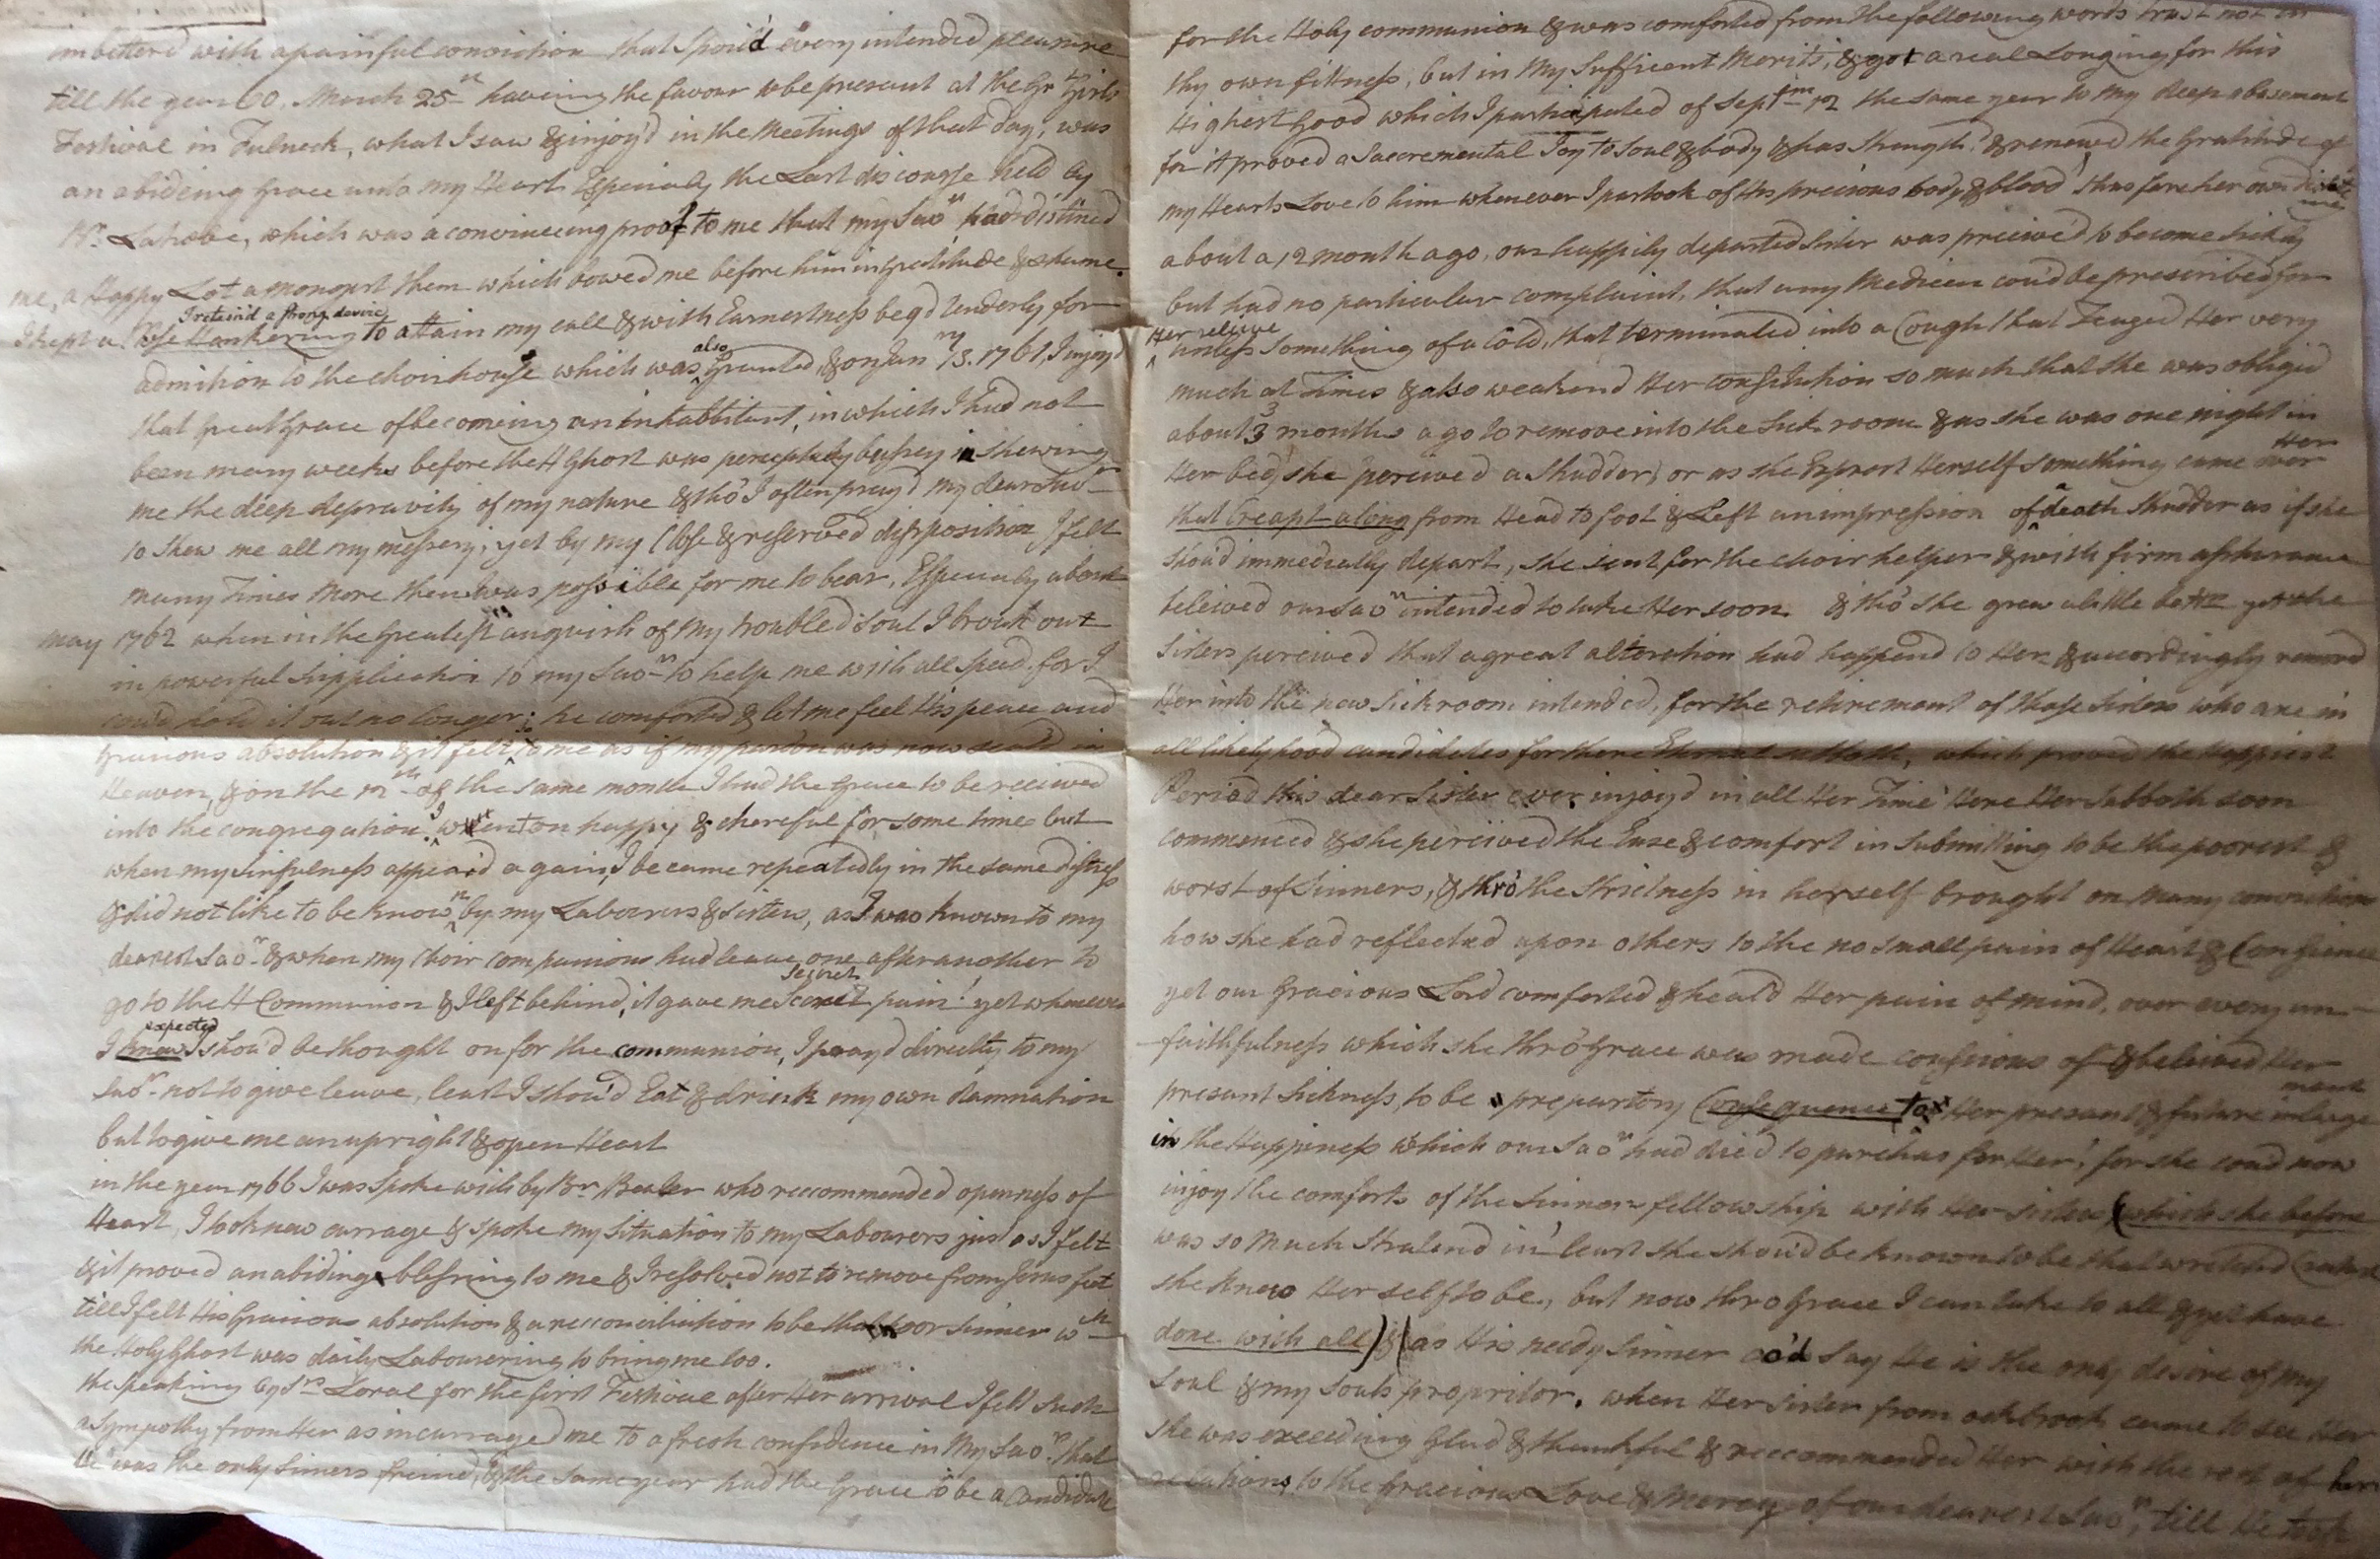 imbitterd with a painful conviction that Spoild every intended pleasure
till the year 60, March 25th haveing the favour to be presant at the Gr Girls
Festival in Fulneck, what I saw & injoy'd in the Meetings of that Day, was
an abideing Grace unto my Heart Especialy the Last discourse held by
Br. Latrobe, which was a convinceing proof to me that my Savr had distined
me, a Happy Lot amongst them which bowed me before him in Gratitude & shame.
I kept a Close Hankering I retain'd a strong desire to attain my call & with Earnestness beg'd tenderly for
admition to the choir house which was also Granted, & on Jany 3. 1761, I injoy'd
that Great Grace of becomeing an inhabbitant, in which I had not
been many weeks before the H Ghost was perceptably bussey in shewing
me the deep depravity of my nature & tho' I often pray'd my dear Savr
to shew me all my messery, yet by my Close & reserved dispposition I felt
many Times More then was possible for me to bear, Especialy about
May 1762 when in the Greatest anguish of my troubled Soul I broak out
in powerful Supplication to my Savr to help me with all Spead for I
cou'd hold it out no longer; he comforted & let me feel His peace and
Gracious absolution & it felt to me as if my pardon was now seald in
Heaven, & on the 12th of the same month I had the Grace to be recived
into the congregation. I went on happy & chereful for some time but
when my sinfulness appear'd again, I became repeatedly in the same distress
& did not like to be known by my Labourers & Sisters, as I was known to my
dearest Savr & when my Choir companions had leave one after another to
go to the H Communion & I left behind, it gave me Secret pain! yet whenever
I knew expected I shou'd be thought on for the communion, I pray'd directly to my
Savr not to give leave, least I shou'd Eat & drink my own damnation
but to give me an upright & open Heart
in the year 1766 I was Spoke with by Br Bealer who reccommended openness of
Heart, I took new currage & spoke my Situation to my Labourers just as I felt
& it proved an abiding blessing to me & I resolved not to remove from Jesus feet
till I felt His Gracious absolution & a recconciliation to be that poor Sinner wch
the Holy Ghost was daily Labourering to bring me too.
the Speaking by Sr Loral for the first Festival after Her arrival I felt Such
a Sympathy from Her as incurraged me to a fresh confidence in My Savr. that
He was the only Sinners freind, & the same year had the Grace to be a Candidate
for the Holy communion & was comforted from the following words trust not in
thy own fittness, but in My Sufficent Merits, & got a real Longing for this
Highest Good which I participated of Septm 12 the same year to my deep abasement
for it proved a Saccremental Joy to Soul & body & has Strengthd & renewed the Gratitude of
my Hearts Love to him whenever I partook of His precious body & blood! thus fare her own
about a 12 month ago, our happily departed Sister was preceived to become Sickly
but had no particular complaint, that any Medicen cou'd be prescribed for
Her releive unless Something of a Cold, that terminated into a Cough that Feaged Her very
much at Times & also weakend Her constitution so much that She was obliged
about 3 months ago to remove into the Sick room & as she was one night in
Her bed, she perceived a Shudder, or as she Exprest Herself something came over Her
that Creapt along from Head to foot & Left an impression of a death Shudder as if she
shou'd immediatly depart, she sent for the choir helper & with firm asshurance
beleived our Savr intended to take Her soon. & tho' she grew a little better yet the
Sisters perceived that a great alteration had happend to Her & accordingly remov'd
Her into the new Sick room intended, for the retirement of those Sisters who are in
all likelyhood candidates for there Eternal Sabbath, which proved the Happiest
Period this dear Sister ever injoy'd in all Her Time! Here Her Sabbath soon
commenced & she perceived the Ease & comfort in Submitting to be the poorest &
worst of Sinners, & thro' the Strictness in herself brought on many convictions
how she had reflected upon others to the no small pain of Heart & Conscience
yet our Gracious Lord comforted & heal'd Her pain of mind, over every un-
faithfulness which she thro' Grace was made conscious of & beleived Her
presant Sickness, to be a preparatory Consequence to Her presant & future inlargement
in the Happiness which our Savr had died to purchas for Her! for she cou'd now
injoy the comforts of the Sinners fellowship with Her Sisters (which she before
was so much Straitend in! least she shou'd be known to be that wretched Creature
she knew Herself to be, but now thro Grace I can take to all & yet have
done with all) & (as His needy Sinner cod Say He is the only desire of my
Soul & my Souls propritor. when Her sister from ockbrook came to see Her
she was exceeding Glad & thankful & reccommended Her with the rest of her
relations to the Gracious Love & Mercy of our dearest Savr, till He took